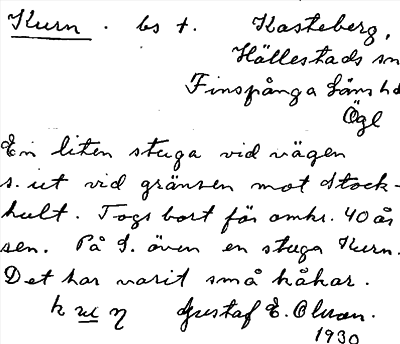 Kurn. bs t. Kasteberg,
Hällestads sn
Finspånga läns hd
Ögl
En liten stuga vid vägen
s. ut vid gränsen mot Stock-
hult. Togs bort för omkr. 40 år
sen. På S. även en stuga Kurn.
Det har varit små kåkar.
Gustaf E. Olsson.
1930